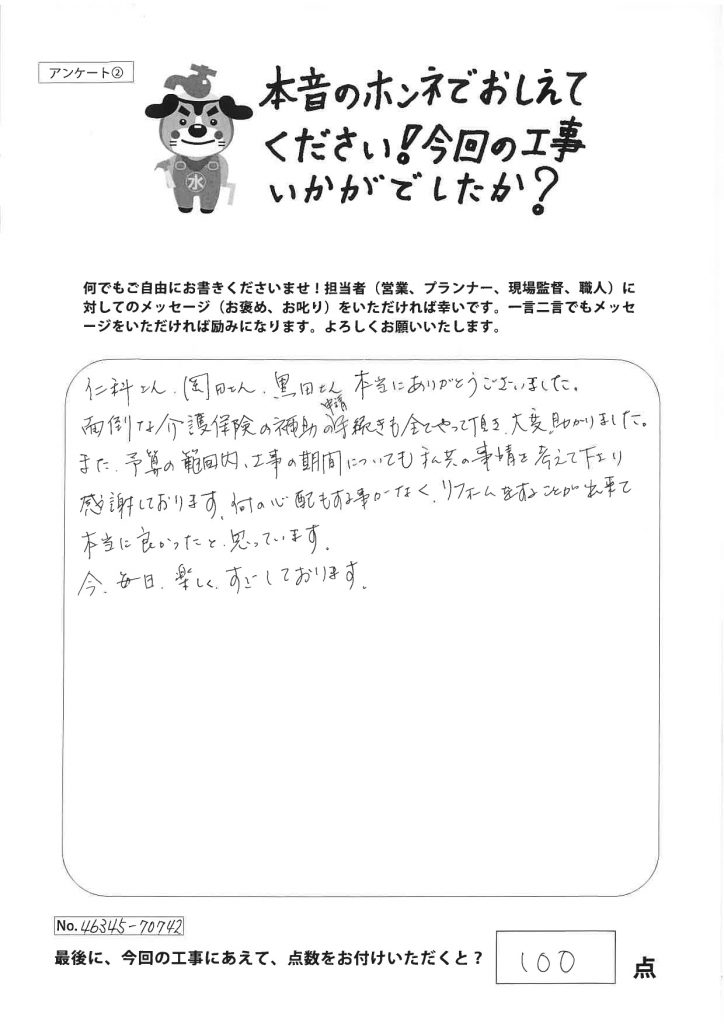 アンケート②
本音のホンネでおしえて
ください!今回の工事
いかがでしたか?
水
何でもご自由にお書きくださいませ!担当者(営業、プランナー、現場監督、職人)に
対してのメッセージ(お褒め、お叱り)をいただければ幸いです。一言二言でもメッセ
ージをいただければ励みになります。よろしくお願いいたします。
仁科さん、岡田さん、黒田さん 本当にありがとうございました。
面倒な介護保険の補助の申請手続きも全てやって頂き、大変、助かりました。
また、予算の範囲内、工事の期間についても私共の事情を考えて下さり
感謝しております。何の心配もする事がなく、リフォームをすることが出来て
本当に良かったと、思っています。
今、毎日、楽しく、すごしております。
No.46345-70742
最後に、今回の工事にあえて、点数をお付けいただくと?
100
点